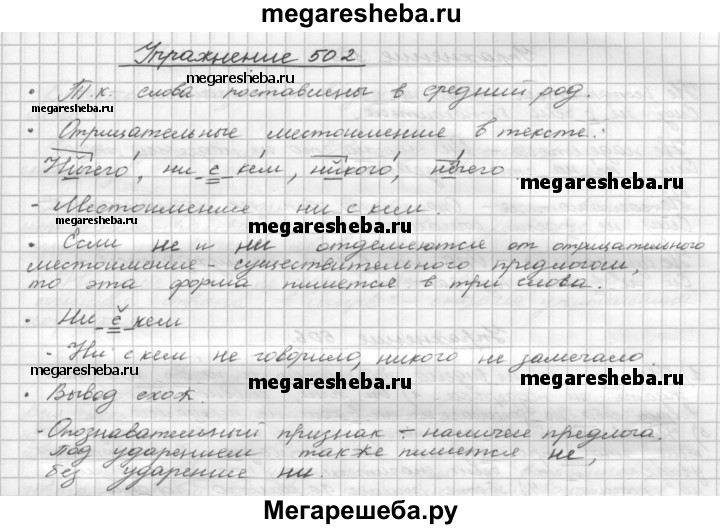 megaresheba.ru
Упражнение 502
megaresheba.ru
• Т.к. слова поставлены в средний род.
megaresheba.ru
megaresheba.ru
• Отрицательные местоимение в тексте:
Ничего, ни с кем, никого, нечего
megaresheba.ru
- Местоимение ни с кем.
megaresheba.ru
megaresheba.ru
• Если не и ни отделяются от отрицательного
местоимение - существительного предлогом,
то эта форма пишется в три слова.
• Ни с кем
- Ни с кем не говорило, никого не замечало.
megaresheba.ru
megaresheba.ru
• Вывод схож.
- Опознавательный признак - наличие предлога.
Под ударением также пишется не,
без ударение ни.
Мегарешеба.ру